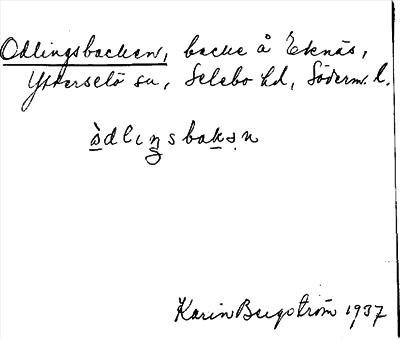 Odlingsbacken, backe å Eknäs,
Ytterselö sn, Selebo hd, Söderm. l.
òdlıŋsbakən
Karin Bergström 1937